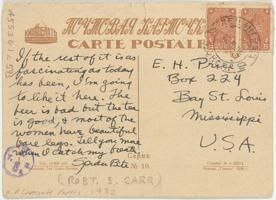 ПОЧТОВАЯ КАРТОЧКА
CARTE POSTALE
If the rest of it is as
fascinating as today
has been, I'm going
to like it here. The
beer is bad but the tea
is good, & most of the
women have beautiful
bare legs. Tell you more
when I catch my breath.
Серия
№ 10.
(ROBT. S. CARR)
1932
E. H. Price
Box 224
Bay St. Louis
Mississippi
U.S.A.